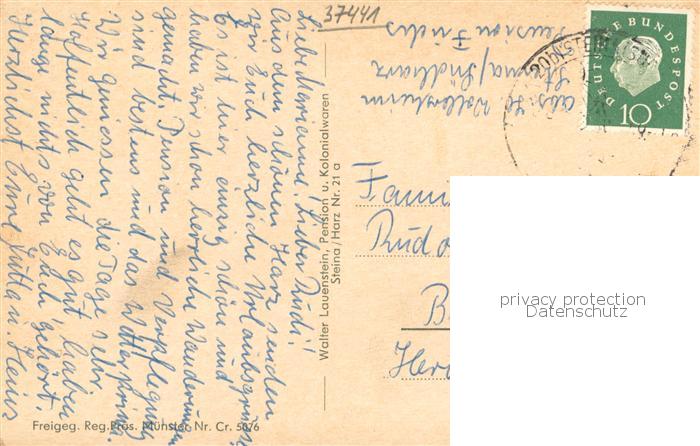 37441
Liebe Marianne, Lieber Rudi!
Aus dem schönen Harz senden
wir Euch herzliche Urlaubsgrüsse
Es ist hier einzig schön und
haben wir schon herrliche Wanderungen
gemacht. Pension und Verpflegung
sind bestens und das Wetter prima.
Wir geniessen die Tage sehr.
Hoffentlich geht es gut, haben
lange nichts von Euch gehört.
Herzlichst Eure Jutta u. Heinz
Walter Lauenstein, Pension u. Kolonialwaren
Steina/Harz Nr. 21 a
Freigeg. Reg.Präs. Münster Nr. Cr. 5076
abs. H.
Steina/Südharz
Pension Fuchs
DEUTSCHE BUNDESPOST
10
Fami
Rudo
B
Her
privacy protection
Datenschutz